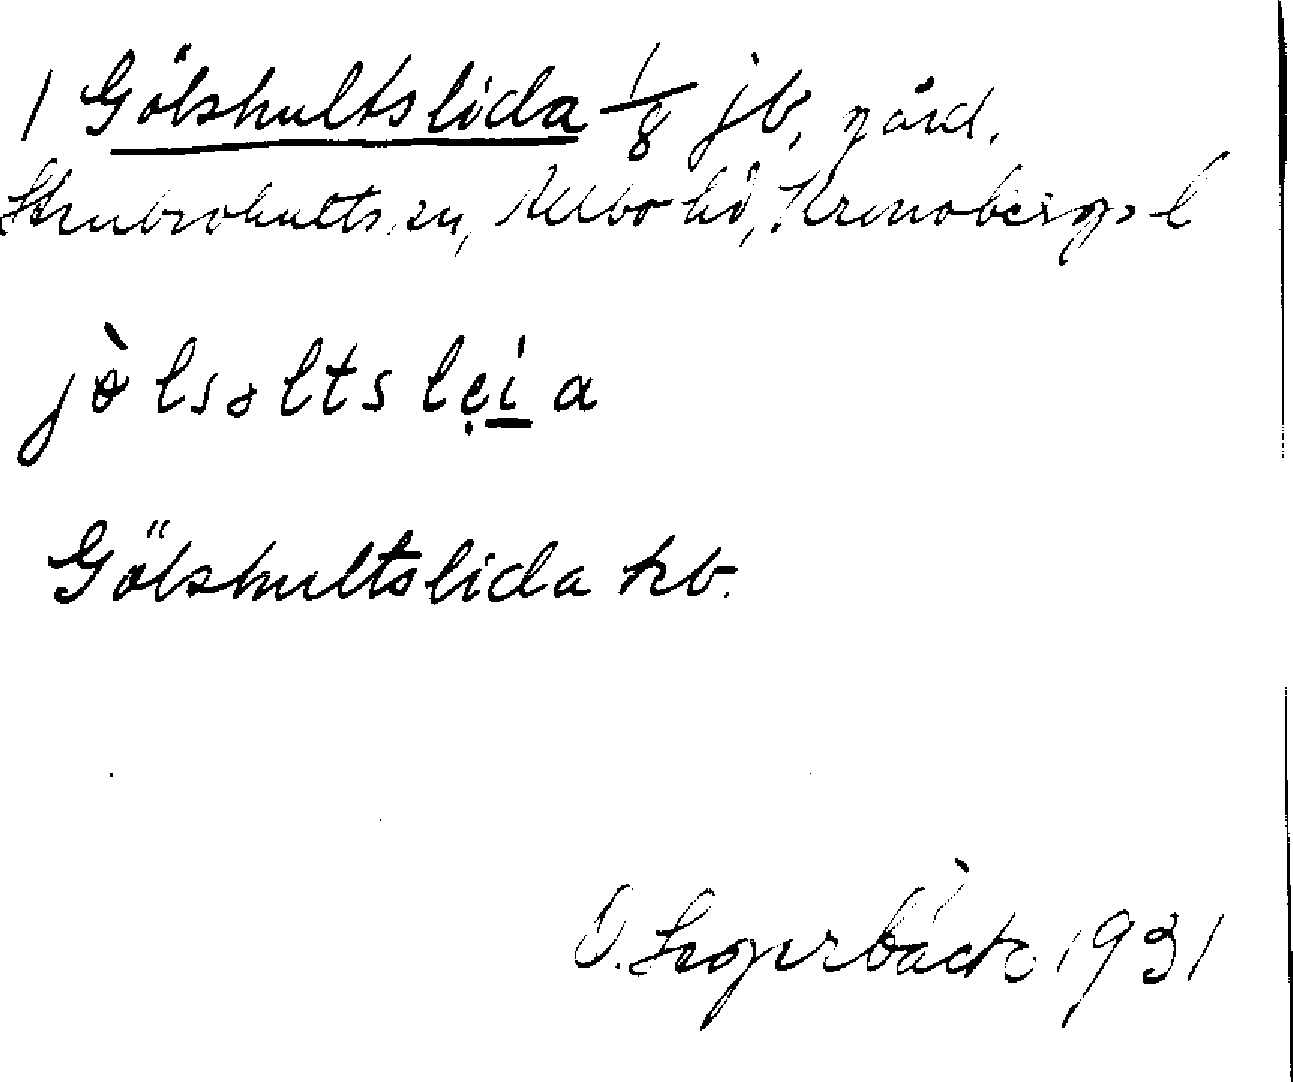 1 Gölshultslida 1/8 jb, gård.
Stenbrohults, sn, Allbo hd, Kronobergs l
jòlsaltslẹi̲a
Gölshultslida kb.
Segerbäck 1931